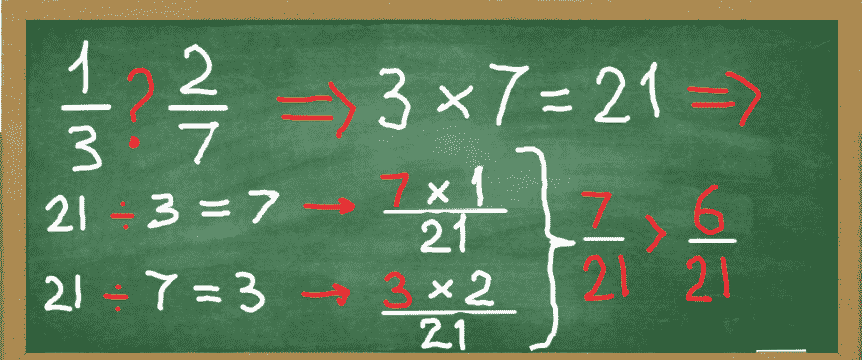 1/3 ? 2/7 ⇒ 3 × 7 = 21 ⇒
21 ÷ 3 = 7 → 7 × 1 / 21
21 ÷ 7 = 3 → 3 × 2 / 21
} 7/21 > 6/21